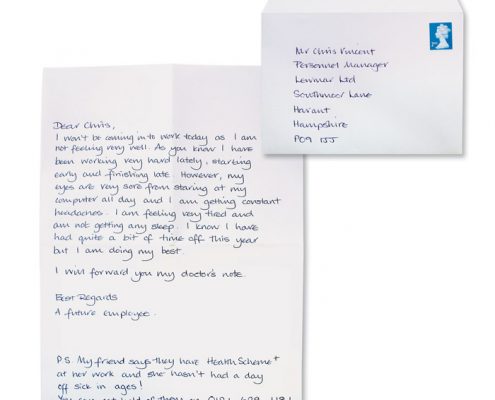 Mr Chris Vincent
Personnel Manager
Lewmar Ltd
Southmoor Lane
Havant
Hampshire
PO9 1JJ
Dear Chris,
I won't be coming in to work today as I am
not feeling very well. As you know I have
been working very hard lately, starting
early and finishing late. However, my
eyes are very sore from staring at my
computer all day and I am getting constant
headaches. I am feeling very tired and
am not getting any sleep. I know I have
had quite a bit of time off this year
but I am doing my best.
I will forward you my doctor's note.
Best Regards
A future employee.
PS My friend says they have HealthScheme+
at her work and she hasn't had a day
off sick in ages!